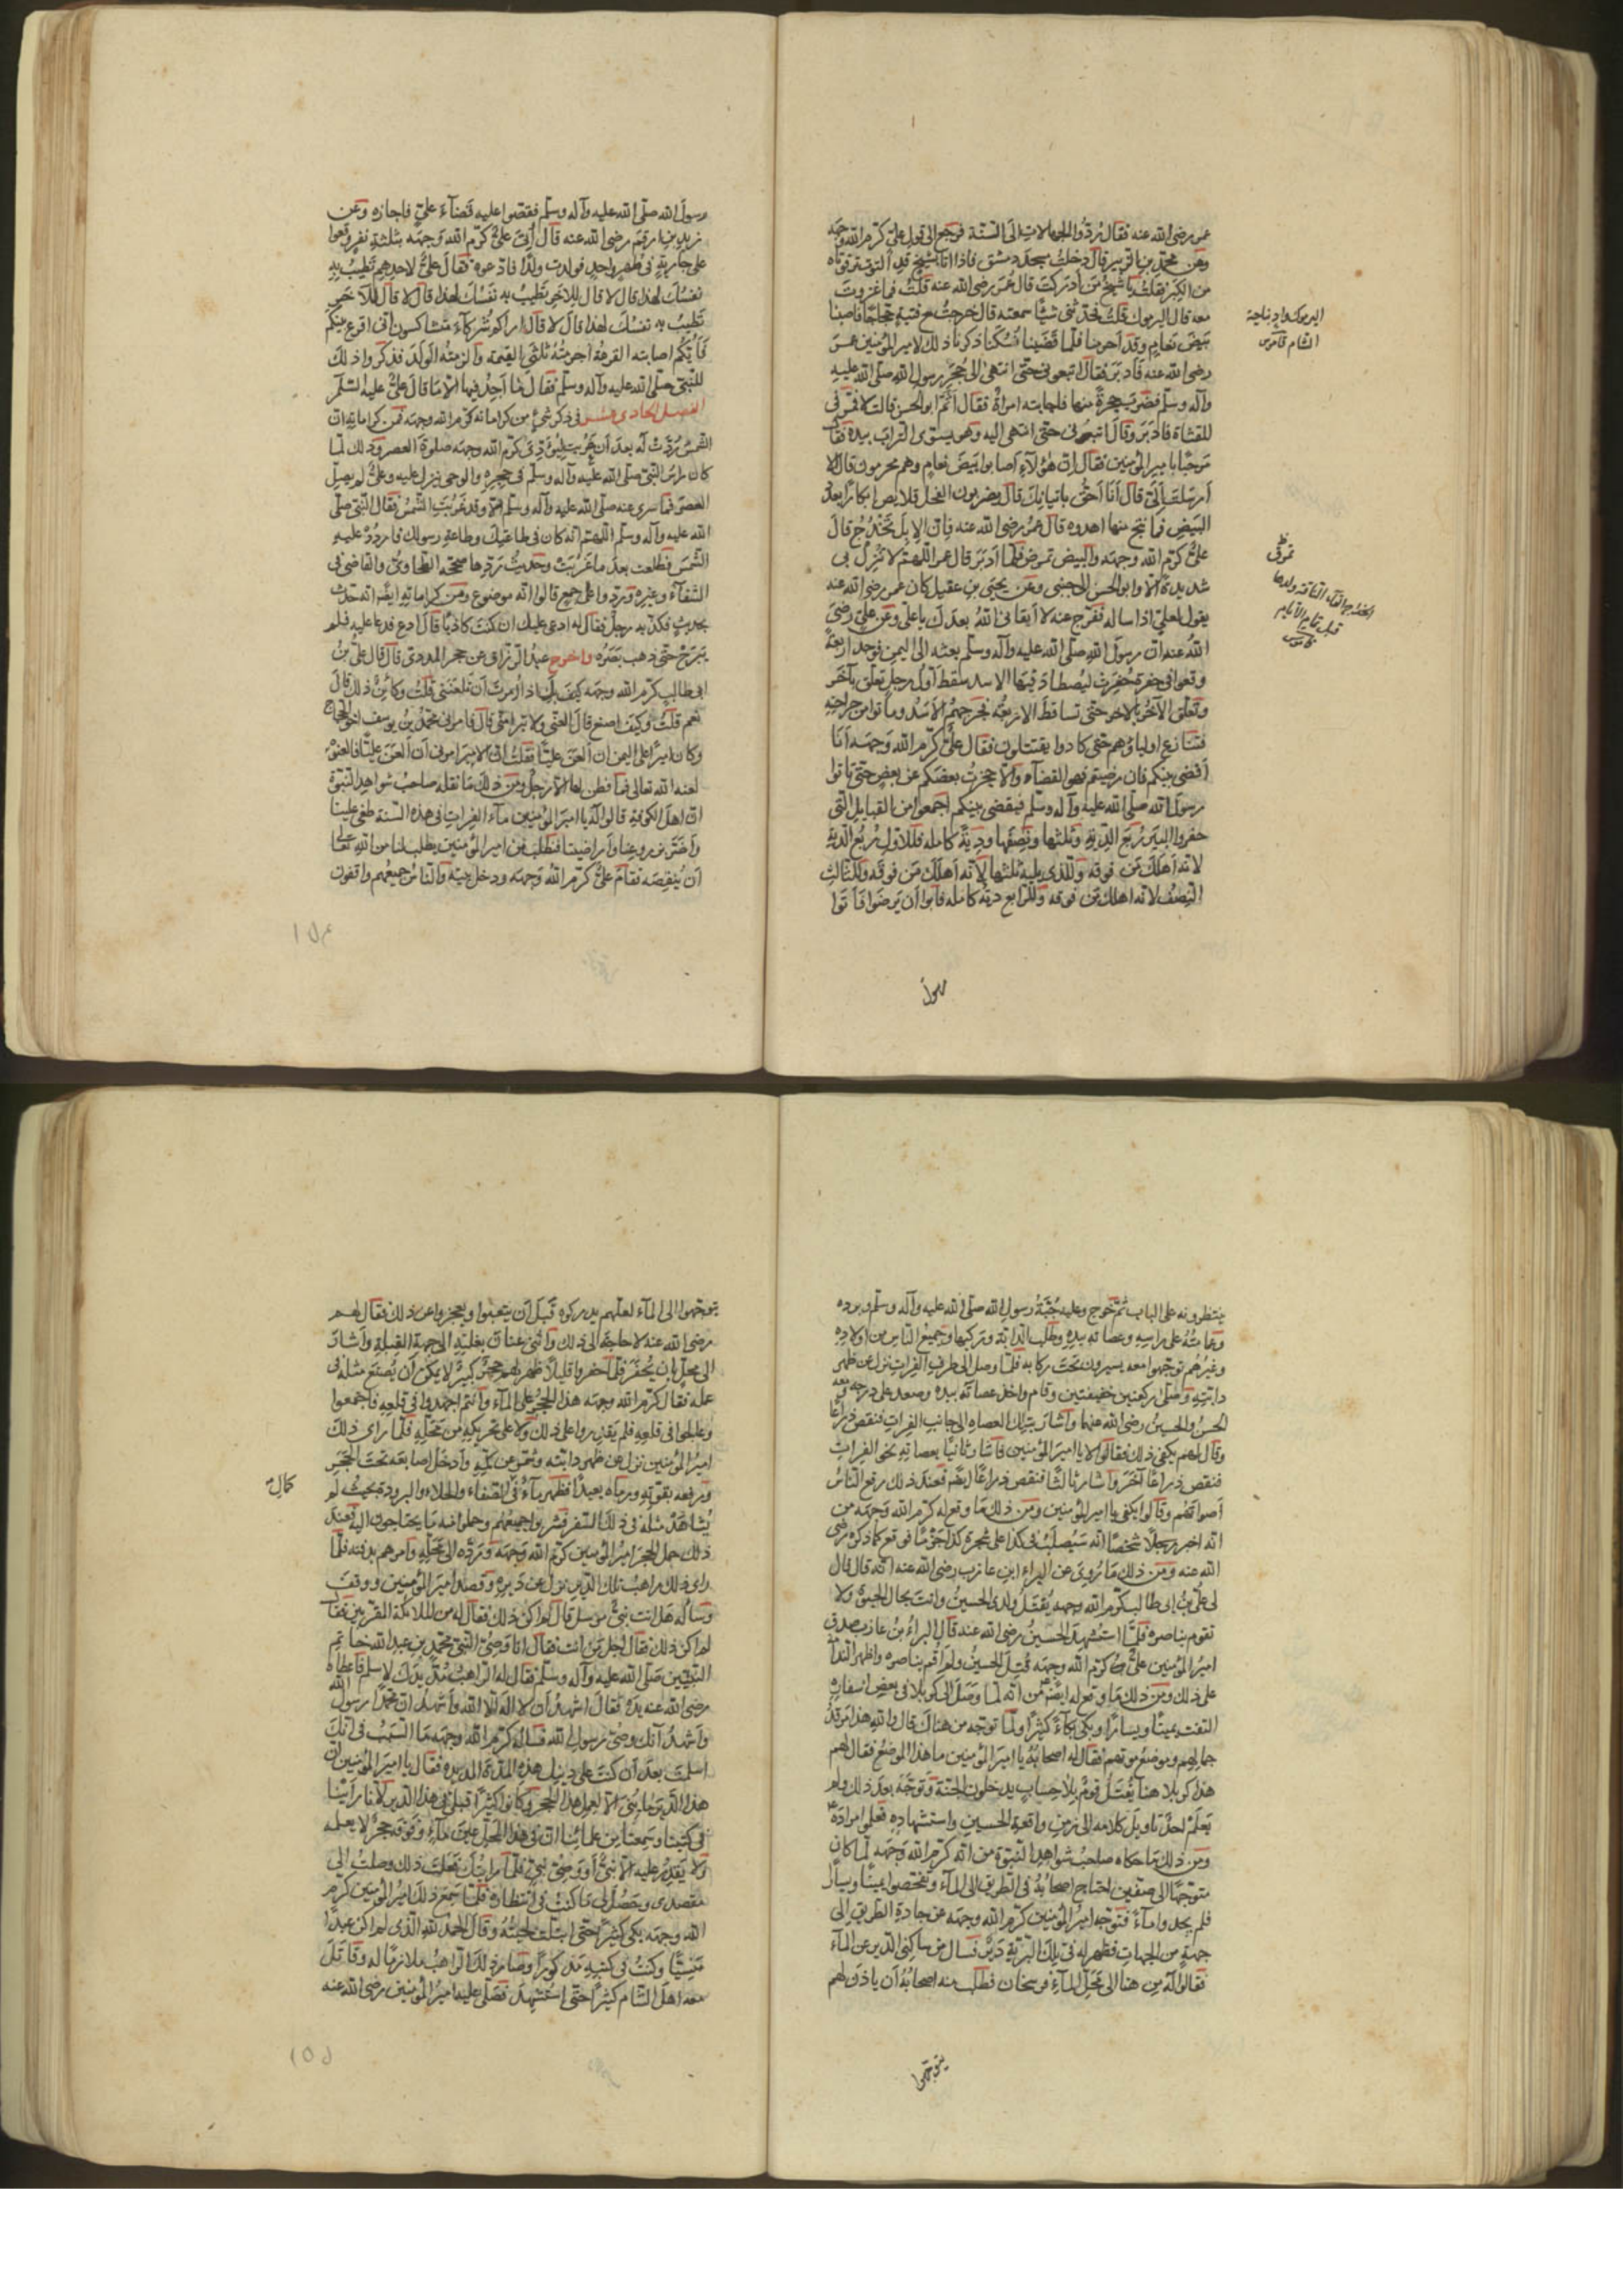 عمر رضى الله عنه فقال ردّوا الجهالات الى السّنّة فرجع الى قول علىّ كرّم الله وجهه
وعن محمّد بن الزّبير قال دخلت مسجد دمشق فاذا انا بشيخ قد التوت ترقوتاه
من الكبر فقلت يا شيخ من أدركت قال عمر رضى الله عنه قلت فما غزوت
معه قال اليرموك قلت فحدّثنى شيئًا سمعته قال خرجت مع فتية حجّاجًا فاصبنا
بيض نعام وقد أحرمنا فلمّا قضينا نسكنا ذكرنا ذلك لامير المؤمنين عمر
رضى الله عنه فأدبر وقال اتبعونى حتّى انتهى الى حجر رسول الله صلّى الله عليه
وآله وسلّم فضرب حجرة منها فاجابته امرأة فقال أثمّ ابو الحسن قالت لا فمرّ فى
المقثاة فأدبر وقال اتبعونى حتّى انتهى اليه وهو يسوّى التّراب بيده فقال
مرحبًا يا امير المؤمنين فقال انّ هؤلآء أصابوا بيض نعام وهم محرمون قال الا
أرسلت إلىّ قال أنا أحقّ باتيانك قال يضربون الفحل قلايص ابكارًا بعدد
البيض فما نتج منها اهدوه قال عمر رضى الله عنه فانّ الإبل تخدج قال
علىّ كرّم الله وجهه والبيض تمرض فلمّا أدبر قال عمر اللّهمّ لا تنزل بى
شديدة الّا وابو الحسن الى جنبى وعن يحيى بن عقيل كان عمر رضى الله عنه
يقول لعلىّ اذا ساله ففرّج عنه لا أبقانى الله بعدك يا علىّ وعن علىّ رضى
الله عنه انّ رسول الله صلّى الله عليه وآله وسلّم بعثه الى اليمن فوجد اربعة
وقعوا فى حفرة حفرت ليصطاد فيها الاسد سقط أوّل رجل تعلّق بآخر
وتعلّق الآخر بالاخر حتّى تساقط الاربعة فجرحهم الأسد وماتوا من جراحته
فتنازع اولياؤهم حتّى كادوا يقتتلون فقال علىّ كرّم الله وجهه أنا
أقضى بينكم فان رضيتم فهو القضآء والّا حجزت بعضكم عن بعض حتّى تاتوا
رسول الله صلّى الله عليه وآله وسلّم فيقضى بينكم اجمعوا من القبايل الّتى
حفروا البير ربع الدّية وثلثها ونصفها ودية كامله فللاوّل ربع الدّية
لانّه أهلك من فوقه والّذى يليه ثلثها لأنّه أهلك من فوقه وللثّالث
النّصف لانّه اهلك من فوقه وللرّابع دية كامله فأبوا أن يرضوا فأتوا
رسول
اليرموك واد بناحية
الشام قاموس
قبل تمام الأيام
قاموس
رسول الله صلّى الله عليه وآله وسلّم فقصّوا عليه قضآء علىّ فاجازه وعن
زيد بن ارقم رضى الله عنه قال أتى علىّ كرّم الله وجهه بثلثة نفر وقعوا
على جارية فى طهر واحد فولدت ولدًا فادّعوه فقال علىّ لاحدهم تطيب به
نفسك لهذا قال لا قال للاخر تطيب به نفسك لهذا قال لا قال للآخر
تطيب به نفسك لهذا قال لا قال أراكم شركآء متشاكسون انّى اقرع بينكم
فأيّكم اصابته القرعة أغرمته ثلثى القيمة والزمته الولد فذكروا ذلك
للنّبىّ صلّى الله عليه وآله وسلّم فقال ما أجد فيها الّا ما قال علىّ عليه السّلم
الفصل الحادى عشر فى ذكر شىء من كراماته كرّم الله وجهه فمن كراماته انّ
الشّمس ردّت له بعد أن غربت ليؤدّى كرّم الله وجهه صلوة العصر وذلك لمّا
كان رأس النّبىّ صلّى الله عليه وآله وسلّم فى حجره والوحى ينزل عليه وعلىّ لم يصلّ
العصر فما سرى عنه صلّى الله عليه وآله وسلّم الّا وقد غربت الشّمس فقال النّبىّ صلّى
الله عليه وآله وسلّم اللّهمّ انّه كان فى طاعتك وطاعة رسولك فاردد عليه
الشّمس فطلعت بعد ما غربت وحديث ردّها صحّحه الطّحاوىّ والقاضى فى
الشّفآء وغيره وردّوا على جمع قالوا انّه موضوع ومن كراماته ايضًا انّه حدّث
بحديث فكذّبه رجل فقال له ادعى عليك ان كنت كاذبًا قال ادع فدعا عليه فلم
يبرح حتّى ذهب بصره واخرج عبد الرّزاق عن حجر المدرى قال قال علىّ بن
ابى طالب كرّم الله وجهه كيف بك اذا أمرت أن تلعننى قلت وكائن ذلك قال
نعم قلت وكيف اصنع قال العنّى ولا تبرأ منّى قال فامرنى محمّد بن يوسف اخو الحجّاج
وكان اميرًا على اليمن ان ألعن عليًّا فقلت انّ الامير امرنى أن ألعن عليًّا فالعنوه
لعنه الله تعالى فما فطن لها الّا رجل ومن ذلك ما نقله صاحب شواهد النّبوّة
انّ اهل الكوفة قالوا له يا امير المؤمنين مآء الفرات فى هذه السّنة طغى علينا
وأضرّ بزروعنا وأراضينا فنطلب من امير المؤمنين يطلب لنا من الله تعالى
أن ينقصه فقام علىّ كرّم الله وجهه ودخل بيته والنّاس جميعهم واقفون
ينتظرونه على الباب ثمّ خرج وعليه جبّة رسول الله صلّى الله عليه وآله وسلّم وبرده
وعمامته على راسه وعصاته بيده وطلب الدّابّة وركبها وجميع النّاس من اولاده
وغيرهم توجّهوا معه يسيرون تحت ركابه فلمّا وصل الى طرف الفرات نزل عن ظهر
دابّته وصلّى ركعتين خفيفتين وقام واخذ عصاته بيده وصعد على درجة معه
الحسن والحسين رضى الله عنهما وأشار بتلك العصاه الى جانب الفرات فنقص ذراعًا
وقال لهم يكفى ذلك فقالوا لا يا امير المؤمنين فأشار ثانيًا بعصاته نحو الفرات
فنقص ذراعًا آخر وأشار ثالثًا فنقص ذراعًا ايضًا فعند ذلك رفع النّاس
أصواتهم وقالوا يكفى يا امير المؤمنين ومن ذلك ما وقع له كرّم الله وجهه من
انّه اخبر رجلًا شخصًا انّه سيصلب فى كذا على شجرة كذا جزمًا فوقع كما ذكره رضى
الله عنه ومن ذلك ما روى عن البراء ابن عازب رضى الله عنه انّه قال قال
لى علىّ بن ابى طالب كرّم الله وجهه يقتل ولدى الحسين وانت بحال الحيوة ولا
تقوم بناصره فلمّا استشهد الحسين رضى الله عنه قال البراء بن عازب صدق
امير المؤمنين علىّ كرّم الله وجهه قتل الحسين ولم اقم بناصره واظهر النّدامة
على ذلك ومن ذلك ما وقع له ايضًا من انّه لمّا وصل الى كربلا فى بعض اسفاره
التفت يمينًا ويسارًا وبكى بكآء كثيرًا ولمّا توجّه من هناك قال والله هذا مرقد
جمالهم وموضع موتهم فقال له اصحابه يا امير المؤمنين ما هذا الموضع فقال لهم
هذا كربلا هنا يقتل قوم بلا حساب يدخلون الجنّة وتوجّه بعد ذلك ولم
يعلم احد تاويل كلامه الى زمن واقعة الحسين واستشهاده فعلموا مراده
ومن ذلك ما حكاه صاحب شواهد النّبوّة من انّه كرّم الله وجهه لمّا كان
متوجّهًا الى صفّين احتاج اصحابه فى الطّريق الى المآء وتفحّصوا يمينًا ويسارًا
فلم يجدوا مآء فتوجّه امير المؤمنين كرّم الله وجهه عن جادة الطّريق الى
جهة من الجهات فظهر له فى تلك البرّية دير فسال من ساكنى الدّير عن المآء
فقالوا له من هنا الى محلّ المآء فرسخان فطلب منه اصحابه أن ياذن لهم
يتوجّهوا
يتوجّهوا الى المآء لعلّهم يدركوه قبل أن يتعبوا ويعجزوا عن ذلك فقال لهم
رضى الله عنه لا حاجة الى ذلك وأثنى عنان بغلته الى جهة القبلة وأشار
الى محلّ بان يحفر فلمّا حفروا قليلًا ظهر لهم حجر كبير لا يمكن أن يصنع مثله فى
عمله فقال كرّم الله وجهه هذا الحجر على المآء وأنتم اجهدوا فى قلعه فاجمعوا
وعالجوا فى قلعه فلم يقدروا على ذلك ولا على تحريكه من محلّه فلمّا رأى ذلك
امير المؤمنين نزل عن ظهر دابّته وشمّر عن كمّيه وأدخل اصابعه تحت الحجر
ورفعه بقوّته ورماه بعيدًا فظهر مآء فى الصّفاء والحلاء والبرودة بحيث لم
كمال
يشاهد مثله فى ذلك السّفر فشربوا جميعهم وحملوا منه ما يحتاجون اليه فعند
ذلك حمل الحجر امير المؤمنين كرّم الله وجهه وردّه الى محلّه وأمرهم بدفنه فلمّا
رأى ذلك راهب تلك الدّير نزل عن ديره وقصد امير المؤمنين ووقف
وساله هل انت نبىّ مرسل قال لم اكن ذلك فقال له من الملائكة المقرّبين فقال
لم اكن ذلك فقال اجل من انت فقال انا وصىّ النّبىّ محمّد بن عبد الله خاتم
النّبيّين صلّى الله عليه وآله وسلّم فقال له الرّاهب مدّ يدك لاسلم فاعطاه
رضى الله عنه يده فقال اشهد أن لا اله الّا الله وأشهد انّ محمّدًا رسول الله
وأشهد أنّك وصىّ رسول الله فساله كرّم الله وجهه ما السّبب فى انّك
أسلمت بعد أن كنت على دينك هذه المدّة المديده فقال يا امير المؤمنين انّ
هذا الدّير ما بنى الّا لعمل هذا الحجر وكانوا كثيرًا قبلى فى هذا الدّير لأنّا رأينا
فى كتبنا وسمعنا من علمائنا انّ فى هذا المحلّ عين مآء وفوقه حجر لا يعلمه
ولا يقدر عليه الّا نبىّ أو وصىّ نبىّ فلمّا رأيت أن فعلت ذلك وصلت الى
مقصدى وحصل لى ما كنت فى انتظاره فلمّا سمع ذلك امير المؤمنين كرّم
الله وجهه بكى كثيرًا حتّى ابتلّت لحيته وقال الحمد لله الّذى لم اكن عبدًا
منسيًّا وكنت فى كتبه مذكورًا وصار ذلك الرّاهب ملازمًا له وقاتل
معه اهل الشّام كثيرًا حتّى استشهد فصلّى عليه امير المؤمنين رضى الله عنه